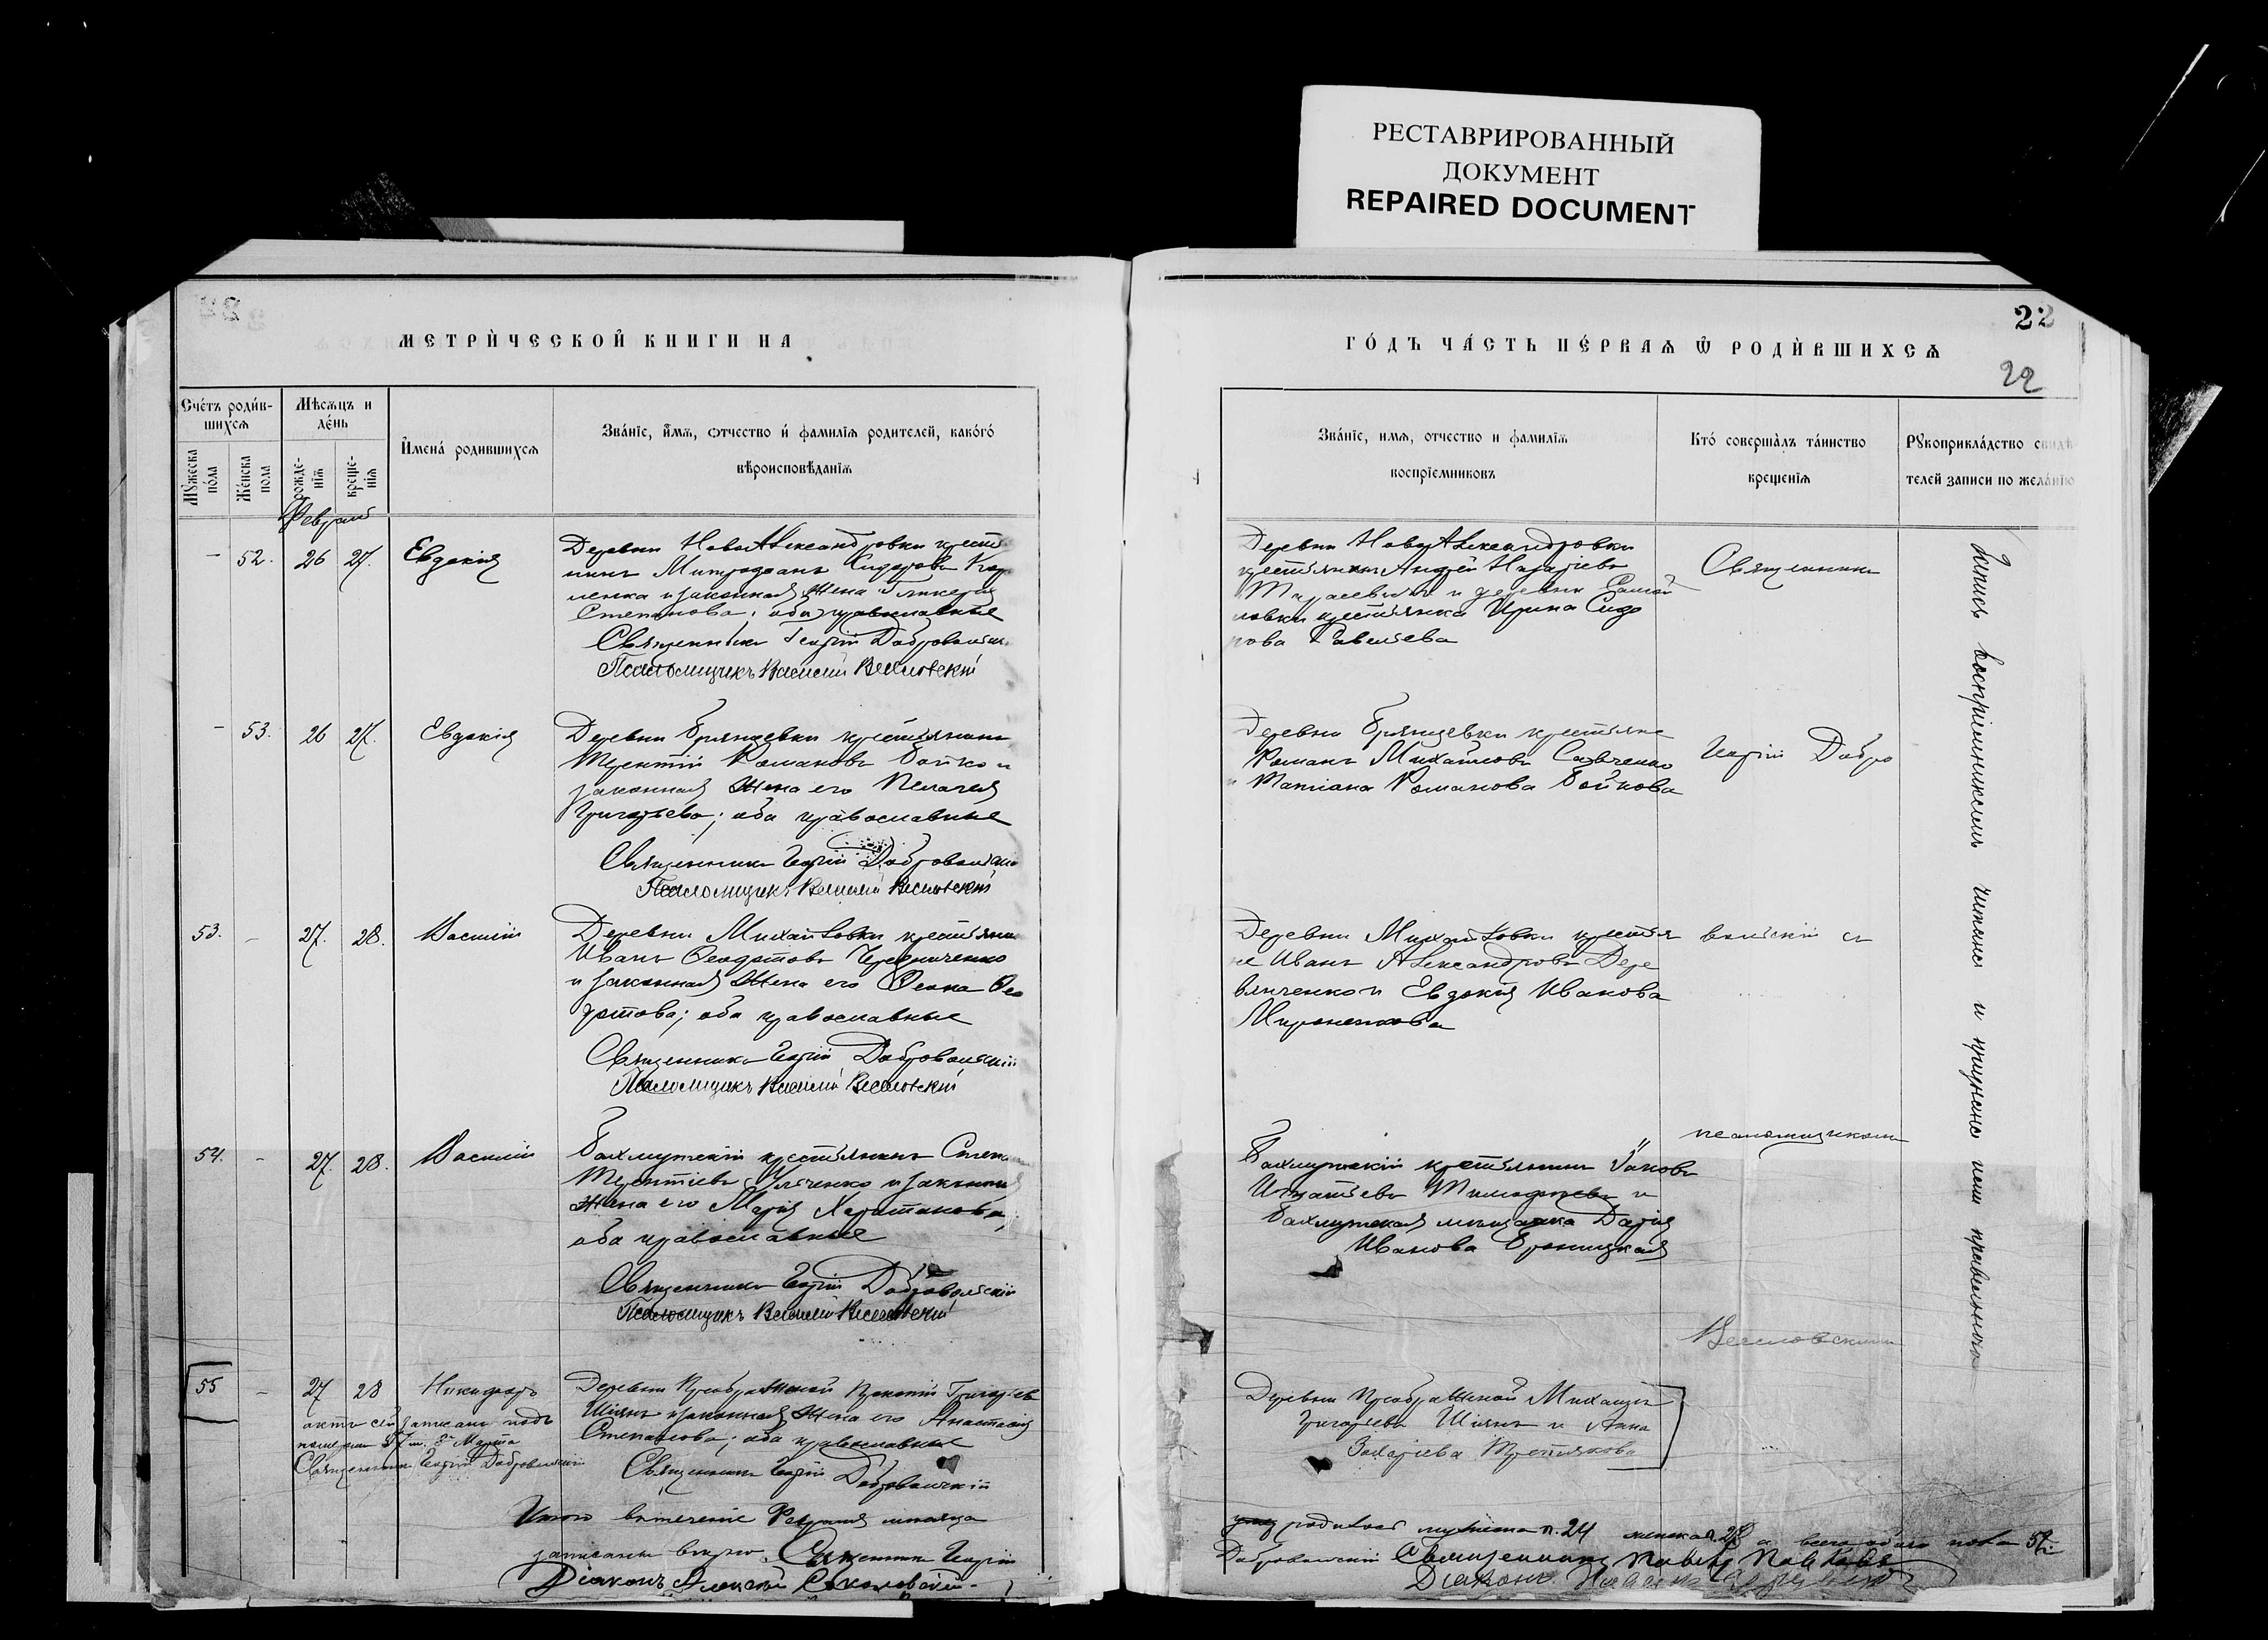 РЕСТАВРИРОВАННЫЙ
ДОКУМЕНТ
REPAIRED DOCUMENT
МЕТРИ́ЧЕСКОЙ КНИГИ НА
Сче́тъ роди́в-
шихсѧ
Мꙋ́жеска по́ла
Же́нска пола
Мѣсѧцъ и де́нь
рожде-нїѧ
креще-нїѧ
И҆мена́ родившихсѧ
Зва́нїе, и҆́мѧ, ѻтчество и҆ фамилїѧ родителей, како́гѡ
вѣроисповѣ́данїѧ
Февраль
— 52. 26 27. Евдокія
Деревни НовоАлександровки крестя
нинъ Митрофанъ Сидоровъ Кор
ленко и законная жена Гликерія
Степанова; оба православные
Священникъ Георгій Добровольскій
Псаломщикъ Василій Веселовскій
— 53. 26 27. Евдокія
Деревни Брянцевки крестьянинъ
Терентій Романовъ Бойко и
законная жена его Пелагея
Григорьева; оба православные
Священникъ Георгій Добровольскій
Псаломщикъ Василій Веселовскій
53. — 27. 28. Василій
Деревни Михайловки крестьянинъ
Иванъ Феодотовъ Чередниченко
и законная жена его Фекла Фео
дотова; оба православные
Священникъ Георгій Добровольскій
Псаломщикъ Василій Веселовскій
54. — 27. 28. Василій
Бахмутскій крестьянинъ Степанъ
Терентіевъ и законная
жена его Марія Харитонова,
оба православные
Священникъ Георгій Добровольскій
Псаломщикъ Василій Веселовскій
55 — 27 28 Никифоръ
Деревни Преображенной Прокопій Григорьевъ
Шіянъ и законная жена его Анастасія
Степанова; оба православные
Священникъ Георгій Добровольскій
актъ сей записанъ подъ
номеромъ 57 м. Марта
Священникъ Георгій Добровольскій
Итого въ теченіе Февраля мѣсяца
записаны вѣрно. Священникъ Георгій
Діаконъ Алексій Соколовскій
22
ГО́ДЪ ЧА́СТЬ ПЕ́РВАѦ Ѽ РОДИ́ВШИХСѦ
22
Зва́нїе, имѧ, отчество и фамилїѧ
воспрїемниковъ
Кто́ соверша̀лъ та́инство
креще́нїѧ
Рꙋкоприкла́дство свидѣ
телей записи по жела́нїю
Деревни НовоАлександровки
крестьянинъ Андрей Назаріевъ
Тарасевичъ и деревни Самой
ловки крестьянка Ирина Сидо
рова Савельева
Деревни Брянцевки крестьяне
Романъ Михайловъ Савченко
и Татіана Романова Бойкова
Деревни Михайловки крестья
не Иванъ Александровъ Дере
вянченко и Евдокія Иванова
Мироненкова
Бахмутскій крестьянинъ Іаковъ
Игнатьевъ Тимофеевъ и
Бахмутская мѣщанка Дарія
Иванова
Деревни Преображенной Михаилъ
Григорьевъ Шіянъ и Анна
Захаріева Третьякова
Священникъ
Георгій Добро
вольскій съ
псаломщикомъ
Веселовскимъ
Запись воспріемникамъ читана и признана ими правильною
родилось мужеска п. 24 женска п. 28 а всего обоего пола 52.
Добровольскій Священникъ Павелъ
Діаконъ